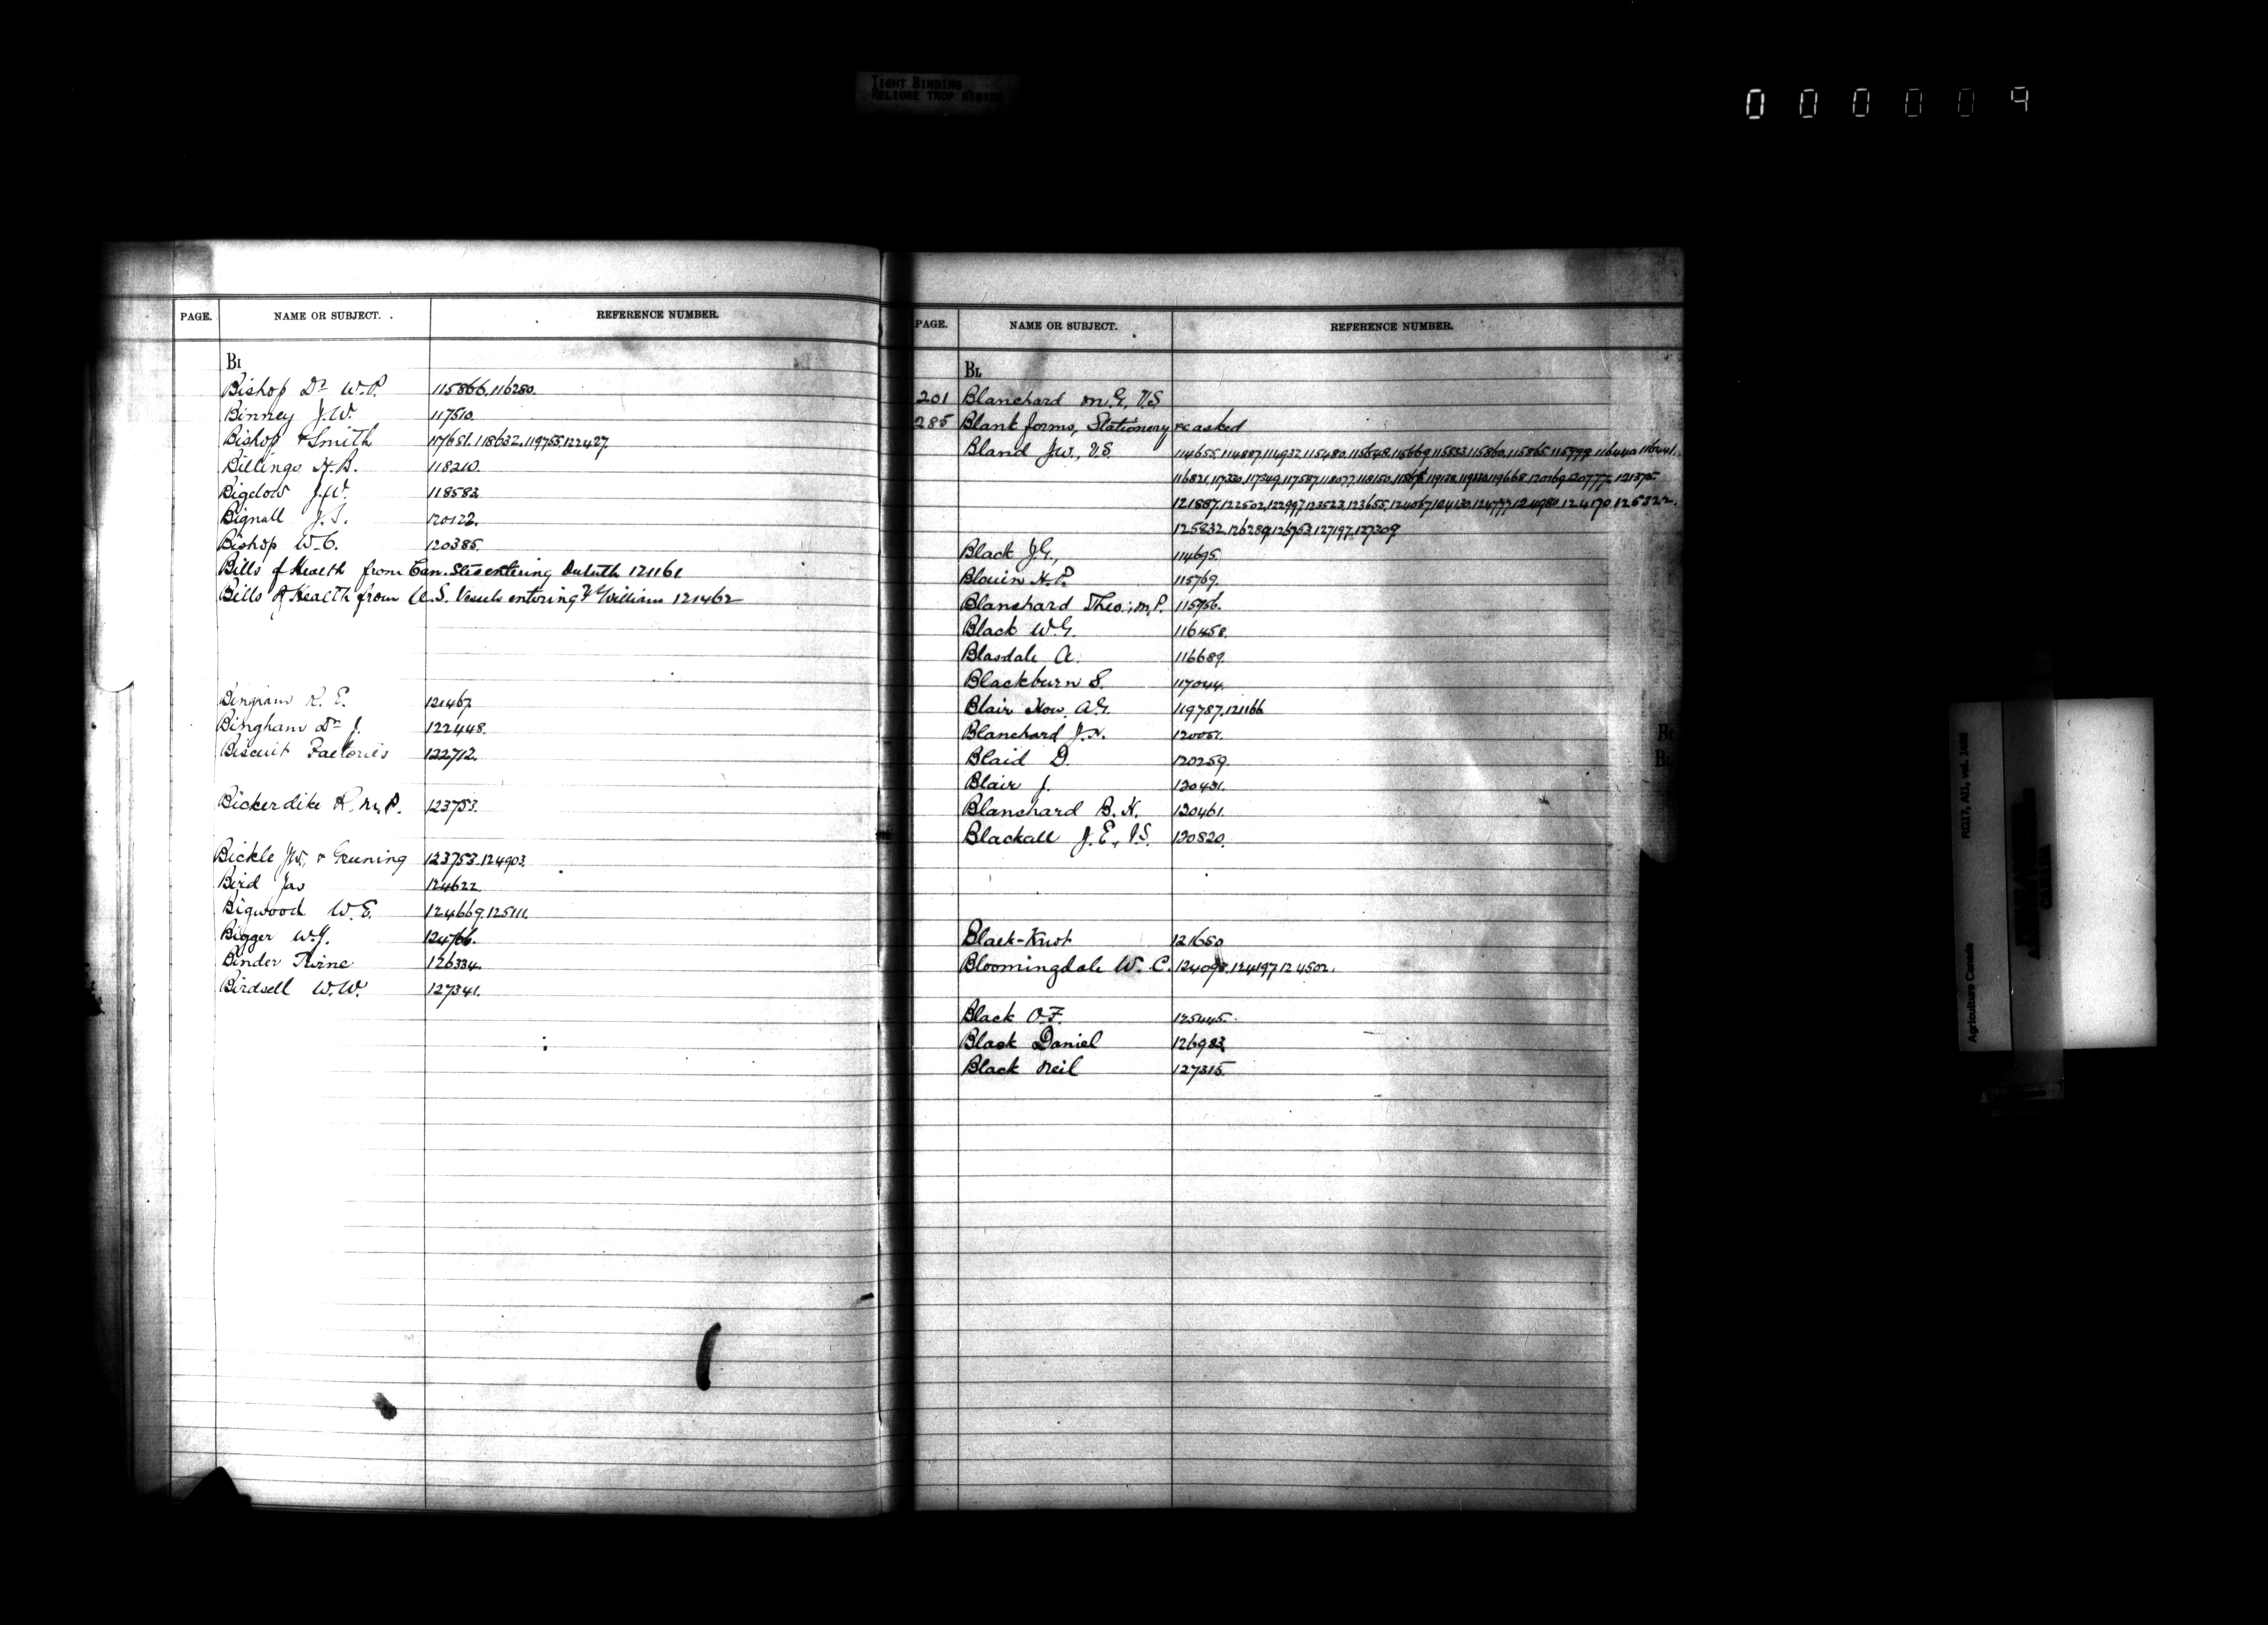 TIGHT BINDING
RELIURE TROP RIGIDE
0 0 0 0 0 9
PAGE. NAME OR SUBJECT. REFERENCE NUMBER.
BI
Bishop Dr W.P. 115866. 116280.
Binney J.W. 117510.
Bishop & Smith 117651. 118632. 119755. 122427.
Billings H.B. 118210.
Bigelow J.W. 118583
Bignall J.S. 120122.
Bishop W.C. 120385.
Bills of Health from Can. Strs entering Duluth 121161
Bills of Health from U.S. Vessels entering Ft William 121462
Bingram R. E. 121467.
Bingham Dr J. 122448.
Biscuit Factories 122712.
Bickerdike R. M.P. 123753.
Bickle J.W. & Gruning 123753. 124903.
Bird Jas 124622
Bigwood W.E. 124669. 125111.
Bigger W.J. 124766.
Binder Twine 126334.
Birdsell W.W. 127341.
PAGE. NAME OR SUBJECT. REFERENCE NUMBER.
BL
201 Blanchard M.G, V.S
285 Blank forms, Stationery &c asked
Bland J.W., V.S. 114655. 114887. 114932. 115480. 115648. 115669. 115853. 115860. 115865. 115999. 116440. 116441.
116821. 117330. 117349. 117587. 118077. 118150. 119668. 120169. 120777. 121375.
121887. 122502. 122997. 123523. 123655. 124067. 124130. 124777. 124980. 124170. 125322.
125832. 126289. 126753. 127197. 127309.
Black J.G., 114695.
Blouin H.P. 115769.
Blanchard Theo., M.P. 115956.
Black W.G. 116458.
Blasdale A. 116689.
Blackburn S. 117044.
Blair Hon. A.G. 119787. 121166
Blanchard J.N. 120051.
Blaid D. 120259.
Blair J. 120431.
Blanchard B.H. 120461.
Blackall J.E., V.S. 120820.
Black-Knot 121650
Bloomingdale W. C. 124098. 124197. 124502.
Black O.F. 125445.
Black Daniel 126983
Black Neil 127315.
Agriculture Canada
RG17, AII, vol. 1488